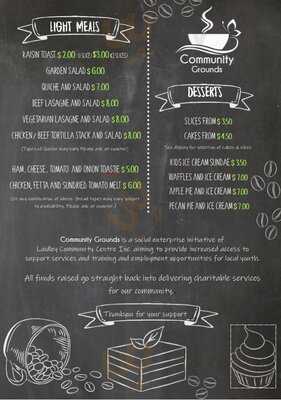 LIGHT MEALS
RAISIN TOAST $2.00 (1 SLICE) $3.00 (2 SLICES)
GARDEN SALAD $6.00
QUICHE AND SALAD $7.00
BEEF LASAGNE AND SALAD $8.00
VEGETARIAN LASAGNE AND SALAD $8.00
CHICKEN/ BEEF TORTILLA STACK AND SALAD $8.00
HAM, CHEESE, TOMATO AND ONION TOASTIE $5.00
CHICKEN, FETTA AND SUNDRIED TOMATO MELT $6.00
to availability. Please ask at counter.)
Community
Grounds
DESSERTS
SLICES FROM $3.50
CAKES FROM $4.50
(See display for selection of cakes & slices)
KIDS ICE CREAM SUNDAE $3.50
WAFFLES AND ICE CREAM $7.00
APPLE PIE AND ICE CREAM $7.00
PECAN PIE AND ICE CREAM $7.00
Community Grounds is a social enterprise initiative of
Laidley Community Centre Inc. aiming to provide increased access to
support services and training and employment opportunities for local youth.
All funds raised go straight back into delivering charitable services
for our community.
Thankyou for your support